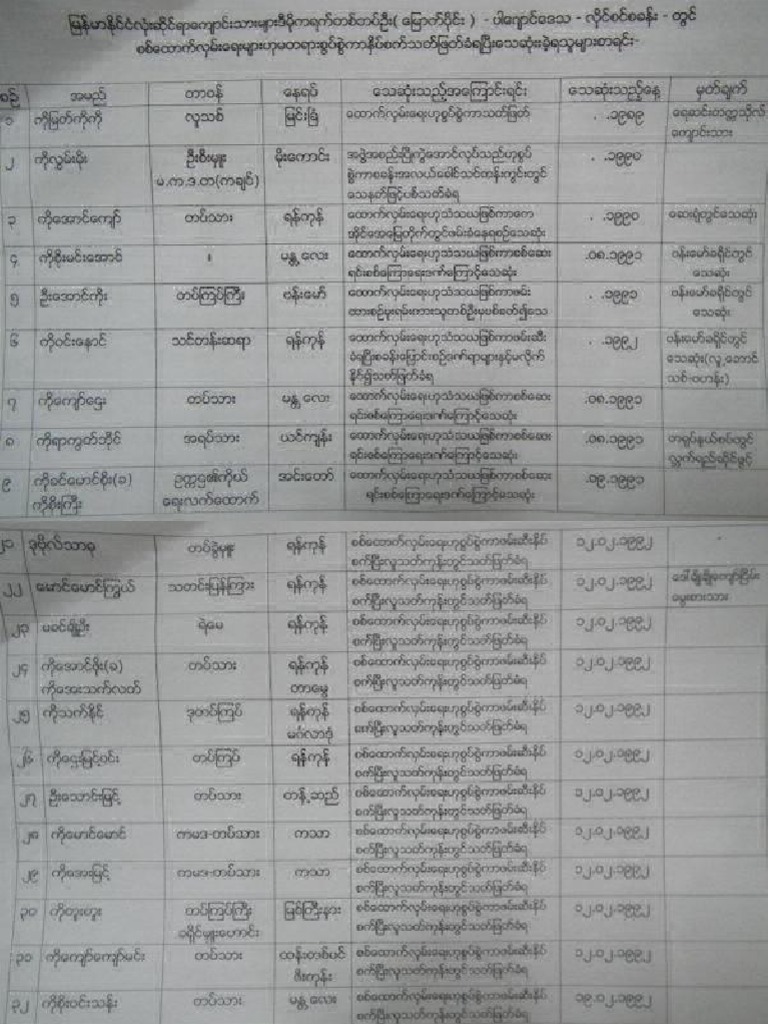 မြန်မာနိုင်ငံလုံးဆိုင်ရာကျောင်းသားများဒီမိုကရက်တစ်တပ်ဦး ( မြောက်ပိုင်း ) - ပါဂျောင်ဒေသ - လိုင်စင်စခန်း - တွင်
စစ်ထောက်လှမ်းရေးများဟုမတရားစွပ်စွဲကာနှိပ်စက်သတ်ဖြတ်ခံရပြီးသေဆုံးခဲ့ရသူများစာရင်း-
စဉ် အမည် တာဝန် နေရပ် သေဆုံးသည့်အကြောင်းရင်း သေဆုံးသည့်နေ့ မှတ်ချက်
၁ ကိုမြတ်ကိုကို လူသစ် မြင်းခြံ ထောက်လှမ်းရေးဟုစွပ်စွဲကာသတ်ဖြတ် . .၁၉၈၉ ရေဆင်းတက္ကသိုလ်
ကျောင်းသား
၂ ကိုလွှမ်းမိုး ဦးစီးမှူး မိုးကောင်း အဖွဲ့အစည်းပြိုကွဲအောင်လုပ်သည်ဟုစွပ် . .၁၉၉၀
မ.က.ဒ.တ(ကချင်) စွဲကာစခန်းအလယ်ခေါ်သင်တန်းကွင်းတွင်
သေနတ်ဖြင့်ပစ်သတ်ခံရ
၃ ကိုအောင်ကျော် တပ်သား ရန်ကုန် ထောက်လှမ်းရေးဟုသံသယဖြစ်ကာကေ . .၁၉၉၀ ဆေးရုံတွင်သေဆုံး
အိုင်အေမြေတိုက်တွင်ဖမ်းခံနေရစဉ်သေဆုံး
၄ ကိုစိုးမင်းအောင် " မန္တလေး ထောက်လှမ်းရေးဟုသံသယဖြစ်ကာစစ်ဆေး .၀၈.၁၉၉၁ ဗန်းမော်ခရိုင်တွင်
ရင်းစစ်ကြောရေးဒဏ်ကြောင့်သေဆုံး သေဆုံး
၅ ဦးအောင်ကိုး တပ်ကြပ်ကြီး ဗန်းမော် ထောက်လှမ်းရေးဟုသံသယဖြစ်ကာဖမ်း . .၁၉၉၁ ဗန်းမော်ခရိုင်တွင်
သေဆုံး
၆ ကိုဝင်းနောင် သင်တန်းဆရာ ရန်ကုန် ထောက်လှမ်းရေးဟုသံသယဖြစ်ကာဖမ်းဆီး . .၁၉၉၂ ဗန်းမော်ခရိုင်တွင်
ခံရပြီးစခန်းပြောင်းစဉ်ဒဏ်ရာများနှင့်မလိုက်
နိုင်၍သတ်ဖြတ်ခံရ
၇ ကိုကျော်ဌေး တပ်သား မန္တလေး ထောက်လှမ်းရေးဟုသံသယဖြစ်ကာစစ်ဆေး .၀၈.၁၉၉၁
ရင်းစစ်ကြောရေးဒဏ်ကြောင့်သေဆုံး
၈ အရပ်သား ထောက်လှမ်းရေးဟုသံသယဖြစ်ကာစစ်ဆေး .၀၈.၁၉၉၁
ရင်းစစ်ကြောရေးဒဏ်ကြောင့်သေဆုံး
၉ ကိုခင်မောင်စိုး(ခ) ဥက္ကဌ၏ကိုယ် အင်းတော် ထောက်လှမ်းရေးဟုသံသယဖြစ်ကာစစ်ဆေး .၁၉၉၁
ကိုစိုးကြီး ရေးလက်ထောက် ရင်းစစ်ကြောရေးဒဏ်ကြောင့်သေဆုံး
၂၁ ဒုဗိုလ်သာဓု တပ်ခွဲမှူး ရန်ကုန် စစ်ထောက်လှမ်းရေးဟုစွပ်စွဲကာဖမ်းဆီးနှိပ် ၁၂.၀၂.၁၉၉၂
စက်ပြီးလူသတ်ကုန်းတွင်သတ်ဖြတ်ခံရ
၂၂ မောင်မောင်ကြွယ် သတင်းပြန်ကြား ရန်ကုန် စစ်ထောက်လှမ်းရေးဟုစွပ်စွဲကာဖမ်းဆီးနှိပ် ၁၂.၀၂.၁၉၉၂
စက်ပြီးလူသတ်ကုန်းတွင်သတ်ဖြတ်ခံရ မွေးစားသား
၂၃ မခင်ချိုဦး ရဲမေ ရန်ကုန် စစ်ထောက်လှမ်းရေးဟုစွပ်စွဲကာဖမ်းဆီးနှိပ် ၁၂.၀၂.၁၉၉၂
စက်ပြီးလူသတ်ကုန်းတွင်သတ်ဖြတ်ခံရ
၂၄ ကိုအောင်စိုး(ခ) တပ်သား ရန်ကုန် စစ်ထောက်လှမ်းရေးဟုစွပ်စွဲကာဖမ်းဆီးနှိပ် ၁၂.၀၂.၁၉၉၂
ကိုအေးသက်လတ် တာမွေ စက်ပြီးလူသတ်ကုန်းတွင်သတ်ဖြတ်ခံရ
၂၅ ကိုသက်နိုင် ဒုတပ်ကြပ် ရန်ကုန် စစ်ထောက်လှမ်းရေးဟုစွပ်စွဲကာဖမ်းဆီးနှိပ် ၁၂.၀၂.၁၉၉၂
မင်္ဂလာဒုံ စက်ပြီးလူသတ်ကုန်းတွင်သတ်ဖြတ်ခံရ
၂၆ ကိုဌေးမြင့်ဝင်း တပ်ကြပ် ရန်ကုန် စစ်ထောက်လှမ်းရေးဟုစွပ်စွဲကာဖမ်းဆီးနှိပ် ၁၂.၀၂.၁၉၉၂
စက်ပြီးလူသတ်ကုန်းတွင်သတ်ဖြတ်ခံရ
၂၇ ဦးသောင်းမြင့် တပ်သား တန့်ဆည် စစ်ထောက်လှမ်းရေးဟုစွပ်စွဲကာဖမ်းဆီးနှိပ် ၁၂.၀၂.၁၉၉၂
စက်ပြီးလူသတ်ကုန်းတွင်သတ်ဖြတ်ခံရ
၂၈ ကိုမောင်မောင် ကမဒ-တပ်သား ကသာ စစ်ထောက်လှမ်းရေးဟုစွပ်စွဲကာဖမ်းဆီးနှိပ် ၁၂.၀၂.၁၉၉၂
စက်ပြီးလူသတ်ကုန်းတွင်သတ်ဖြတ်ခံရ
၂၉ ကိုအေးမြင့် ကမဒ-တပ်သား ကသာ စစ်ထောက်လှမ်းရေးဟုစွပ်စွဲကာဖမ်းဆီးနှိပ် ၁၂.၀၂.၁၉၉၂
စက်ပြီးလူသတ်ကုန်းတွင်သတ်ဖြတ်ခံရ
၃၀ ကိုတူးတူး တပ်ကြပ်ကြီး မြစ်ကြီးနား စစ်ထောက်လှမ်းရေးဟုစွပ်စွဲကာဖမ်းဆီးနှိပ် ၁၂.၀၂.၁၉၉၂
ခရိုင်မှူးဟောင်း စက်ပြီးလူသတ်ကုန်းတွင်သတ်ဖြတ်ခံရ
၃၁ ကိုကျော်ကျော်မင်း တပ်သား ထန်းတစ်ပင် စစ်ထောက်လှမ်းရေးဟုစွပ်စွဲကာဖမ်းဆီးနှိပ် ၁၂.၀၂.၁၉၉၂
ဇီးကုန်း စက်ပြီးလူသတ်ကုန်းတွင်သတ်ဖြတ်ခံရ
၃၂ ကိုစိုးဝင်းသန်း တပ်သား မန္တလေး စစ်ထောက်လှမ်းရေးဟုစွပ်စွဲကာဖမ်းဆီးနှိပ် ၁၉.၀၂.၁၉၉၂
စက်ပြီးလူသတ်ကုန်းတွင်သတ်ဖြတ်ခံရ